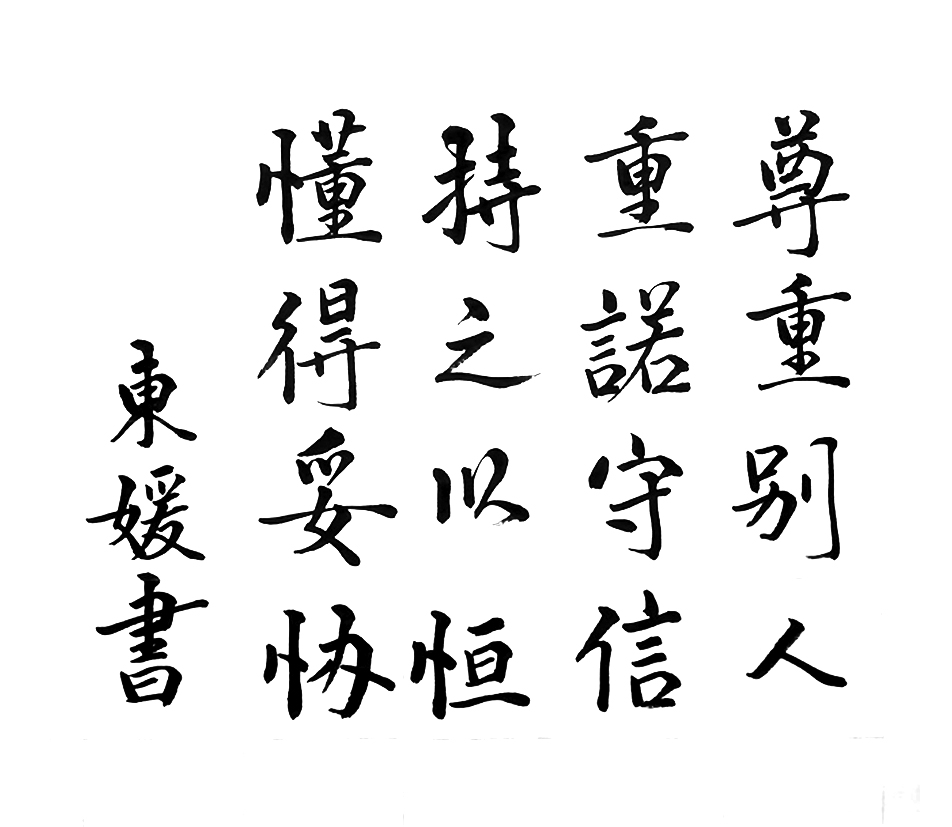 尊重别人
重諾守信
持之以恒
懂得妥协
東媛書